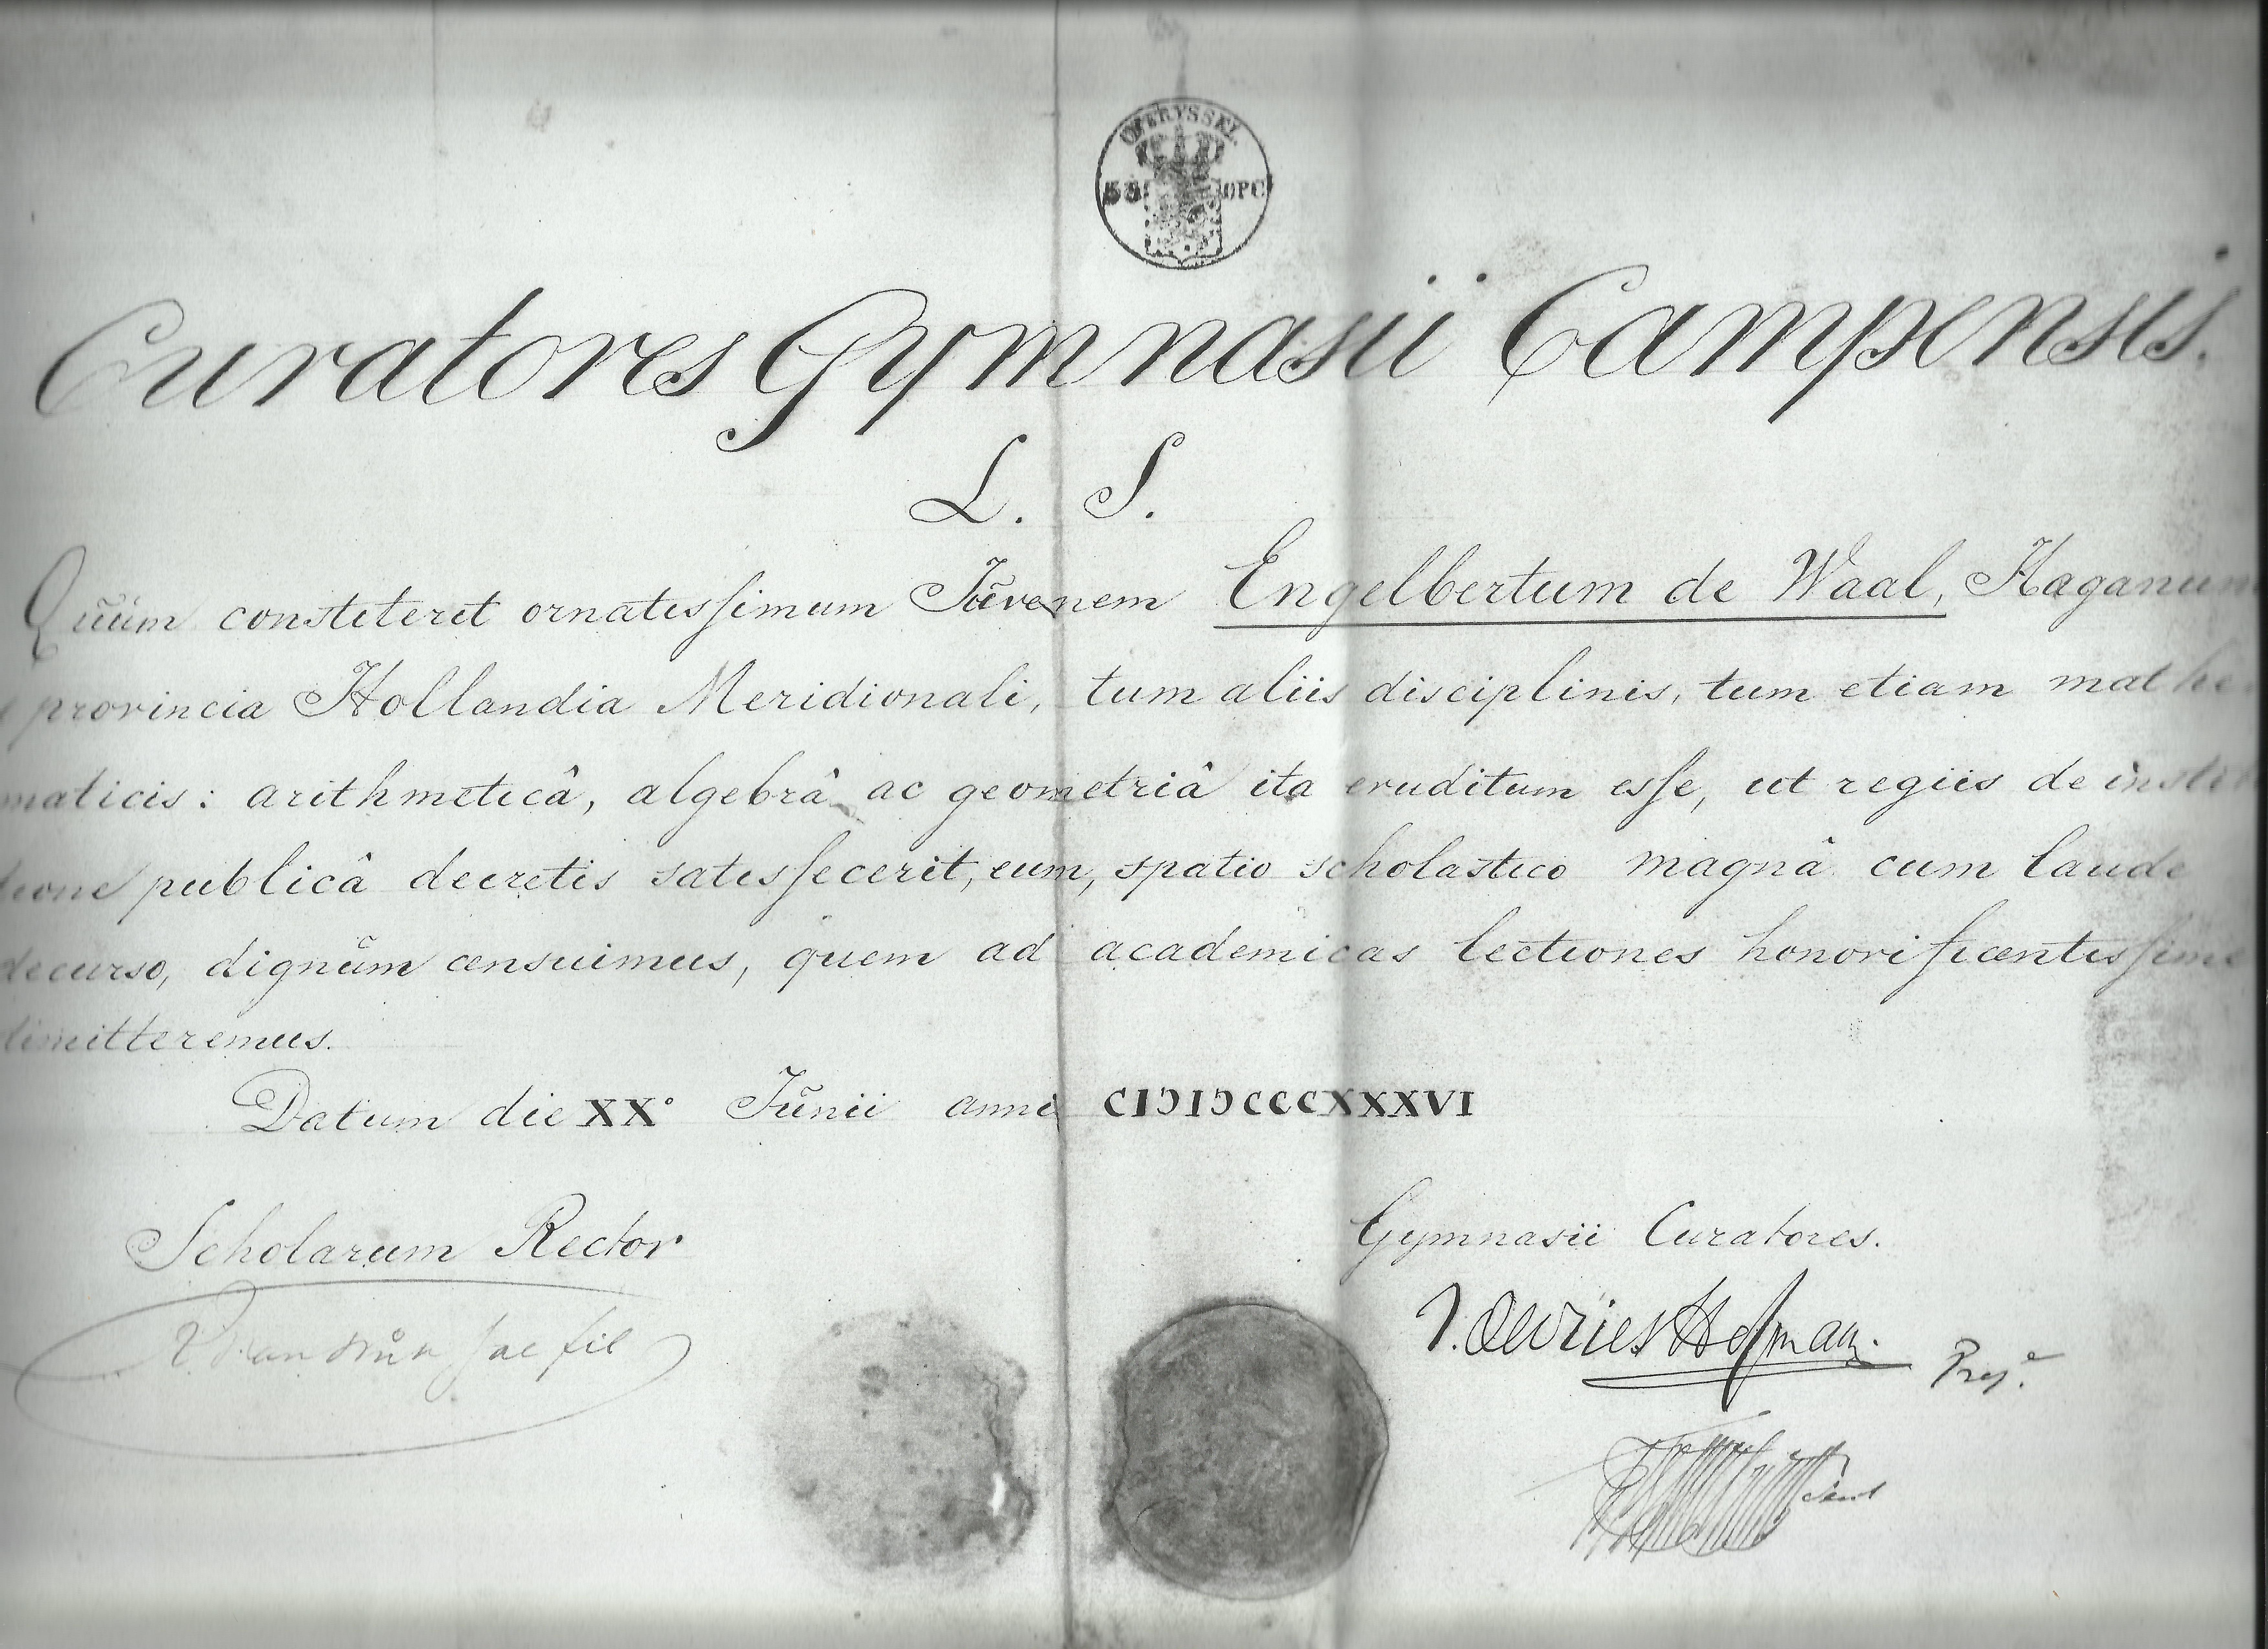 OVERYSSEL
OPC
Curatores Gymnasii Campensis.
L. S.
Quũm constiterit ornatissimum Jũvenem Engelbertum de Waal, Haganum
provincia Hollandia Meridionali, tum aliis disciplinis, tum etiam mathe
maticis: arithmeticâ, algebrâ ac geometriâ ita eruditum esse, ut regiis de instit
tione publicâ decretis satisfecerit, eum, spatio scholastico magnâ cum laude
decurso, dignũm censuimus, quem ad academicas lectiones honorificentissime
dimitteremus.
Datum die XX° Jũnii anni CIƆIƆCCCXXXVI
Scholarum Rector
Gymnasii Curatores.
fil
J. de Vries Hofman.